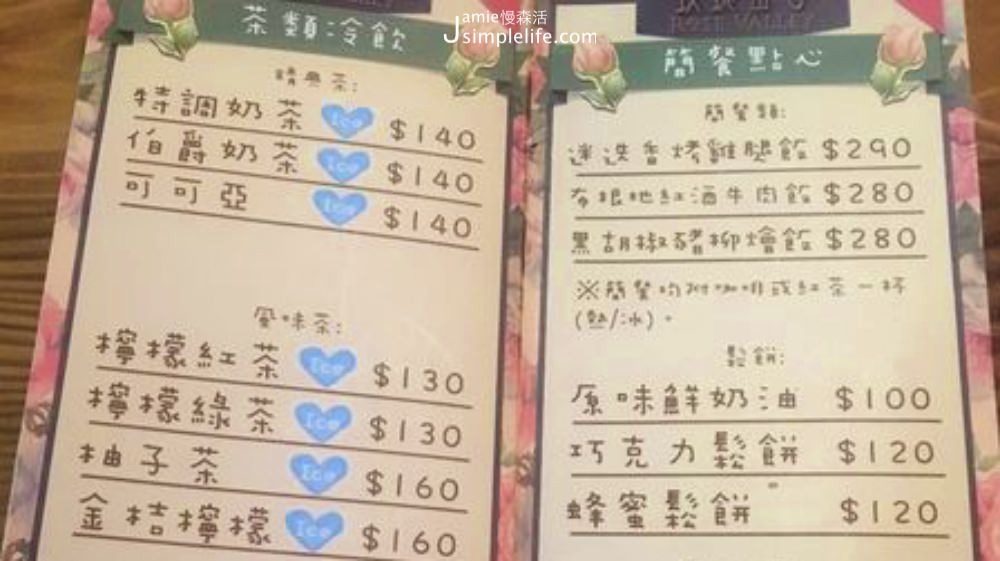 Jamie慢森活
Jsimplelife.com
茶類冷飲
精典茶:
特調奶茶 Ice $140
伯爵奶茶 Ice $140
可可亞 Ice $140
風味茶:
檸檬紅茶 Ice $130
檸檬綠茶 Ice $130
柚子茶 Ice $160
金桔檸檬 Ice $160
ROSE VALLEY
簡餐點心
簡餐類:
迷迭香烤雞腿飯 $290
布根地紅酒牛肉飯 $280
黑胡椒豬柳燴飯 $280
※簡餐均附咖啡或紅茶一杯
(熱/冰)。
鬆餅:
原味鮮奶油 $100
巧克力鬆餅 $120
蜂蜜鬆餅 $120